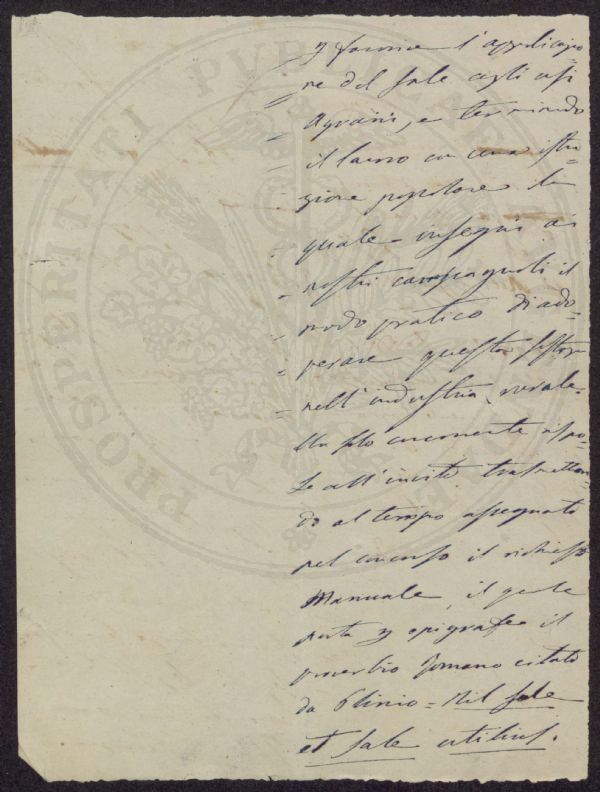 PROSPERITATI PUBLICAE
p fornire l'applicazio-
= ne del sale agli usi
= Agrari, e terminando
= il lavoro con una istru-
= zione popolare la
= quale insegni ai
= nostri campagnoli il
= modo pratico di ado-
= perare questa sostanza
= nell'industria rurale.
Un solo concorrente rispo-
se all'invito trasmetten-
do al tempo assegnato
pel concorso il richiesto
Manuale, il quale
porta p epigrafe il
proverbio romano citato
da Plinio = Nil Sole
et Sale utilius.